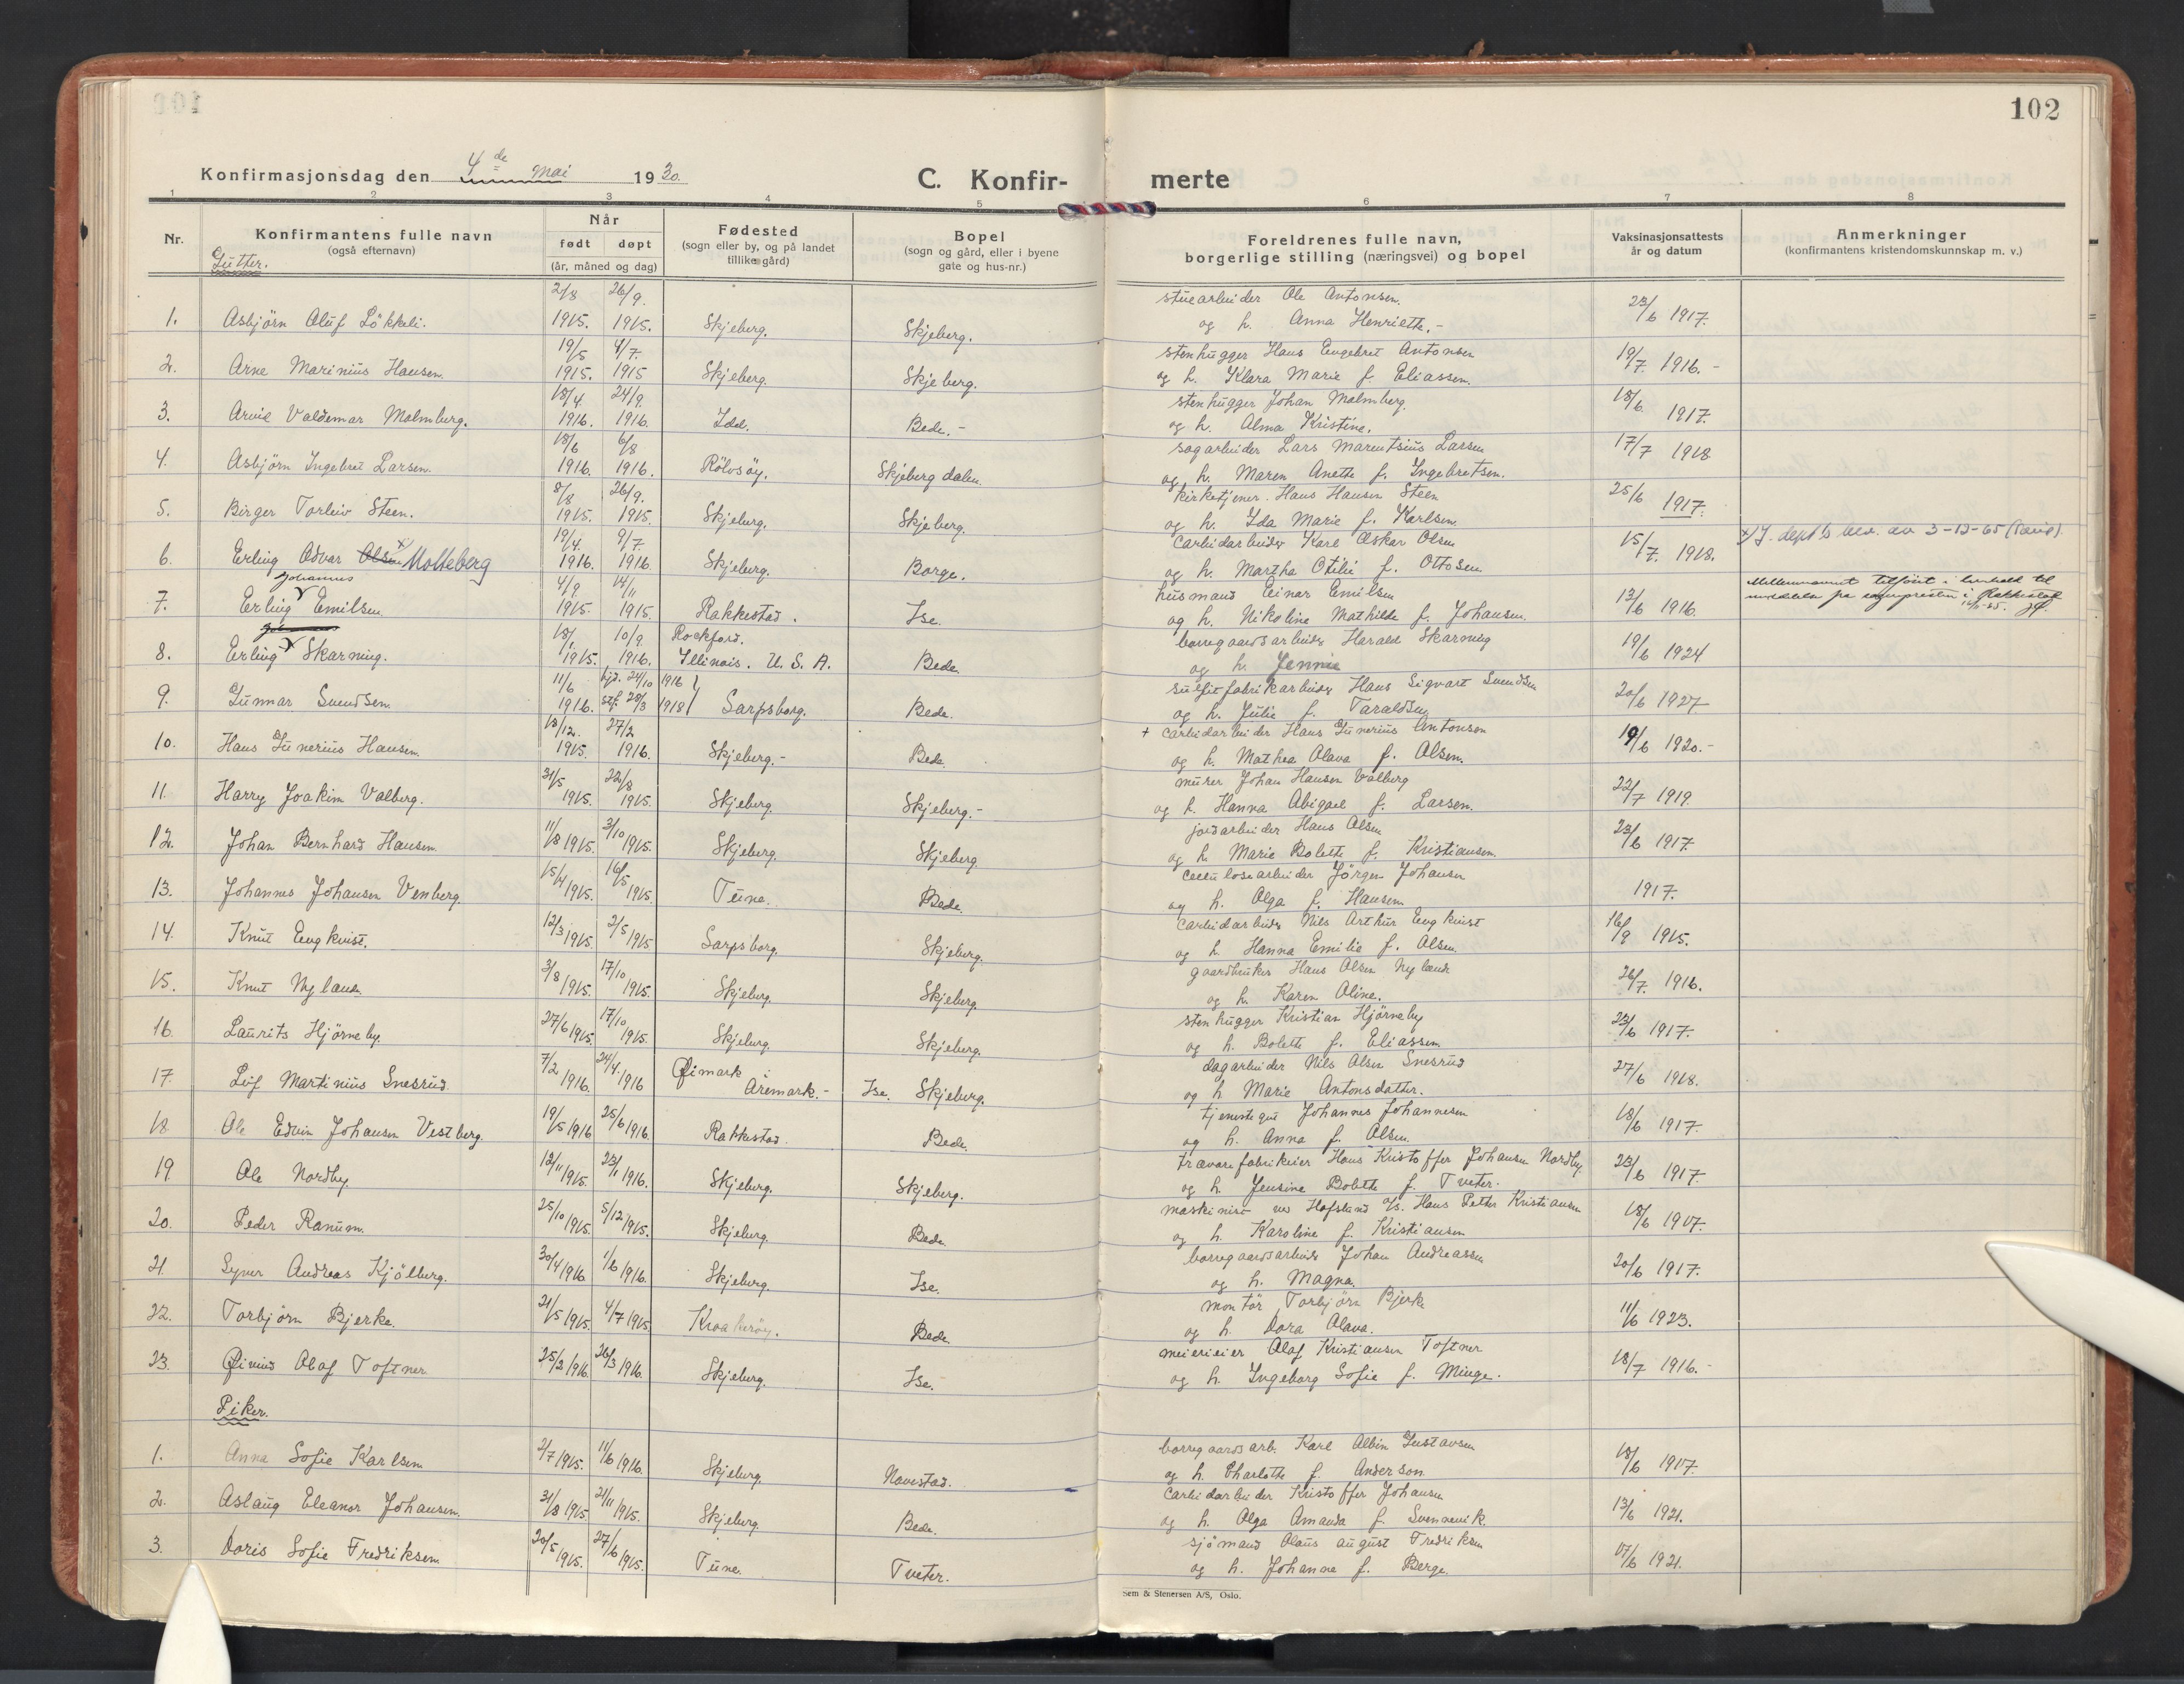 102
Konfirmasjonsdag den 4de mai 1930.
C. Konfir- merte
1 2 3 4 5 6 7 8
Nr.
Konfirmantens fulle navn
(også efternavn)
Gutter.
Når
født døpt
(år, måned og dag)
Fødested
(sogn eller by, og på landet
tillike gård)
Bopel
(sogn og gård, eller i byene
gate og hus-nr.)
Foreldrenes fulle navn,
borgerlige stilling (næringsvei) og bopel
Vaksinasjonsattests
år og datum
Anmerkninger
(konfirmantens kristendomskunnskap m. v.)
2/8 26/9. stuearbeider Ole Antonsen. 23/6 1917.
1. Asbjörn Oluf Lökkeli. 1915. 1915. Skjeberg. Skjeberg. og h. Anna Henriette.-
19/5 4/7. stenhugger Hans Engebret Antonsen 19/7. 1916.-
2. Arne Marinius Hansen. 1915. 1915 Skjeberg. Skjeberg. og h. Klara Marie f. Eliassen.
18/4. 24/9. stenhugger Johan Malmberg. 18/6 1917.
3. Arvid Valdemar Malmberg. 1916. 1916. Idd. Bede.- og h. Alma Kristine.
18/6 6/8 sagarbeider Lars Marentsius Larsen 17/7 1918
4. Asbjörn Ingebret Larsen. 1916. 1916. Rölvsöy. Skjebergdalen. og h. Maren Anette f. Ingebretsen.
8/8 26/9. kirketjener. Hans Hansen Steen 25/6 1917.
5. Birger Torleiv Steen. 1915. 1915. Skjeberg. Skjeberg. og h. Ida Marie f. Karlsen.
19/4. 9/7. carbidarbeider Karl Oskar Olsen 15/7. 1918. x/ J. dept's bev. av 3-12-65
6. Erling Odvar Olsen x Molteberg 1916. 1916 Skjeberg. Borge. og h. Martha Otilie f. Ottosen.
Johannes 4/9 14/11 husmand Einar Emilsen 13/6 1916. Mellemnavnet tilföiet i henhold til
7. Erling Emilsen 1915. 1915 Rakkestad. Ise. og h. Nikoline Mathilde f. Johansen. sognepresten i Rakkestad
18/1 10/9. Rockford. borregaardsarbeider Harald Skarning 19/6 1924
8. Erling Skarning. 1915. 1916. Illinois. U. S. A. Bede. og h. Jennie
11/6 hjd. 24/10 1916 sulfitfabrikarbeider Hans Sigvart Svendsen 20/6 1927
9. Gunnar Svendsen. 1916. stf. 28/3 1918 Sarpsborg. Bede. og h. Julie f. Taraldsen
18/12. 27/2 + carbidarbeider Hans Gunerius Antonsen 19/6 1920.-
10. Hans Gunerius Hansen. 1915. 1916. Skjeberg.- Bede. og h. Mathea Olava f. Olsen.
31/5 22/8 murer Johan Hansen Valberg 22/7 1919.
11. Harry Joakim Valberg. 1915. 1915. Skjeberg. Skjeberg.- og h. Hanna Abigael f. Larsen.
jordarbeider Hans Olsen 23/6 1917.
12. Johan Bernhard Hansen. 11/8 1915. 3/10 1915. Skjeberg. Skjeberg. og h. Marie Bolette f. Kristiansen.
cellulosearbeider Jörgen Johansen 1917.
13. Johannes Johansen Venberg. 15/4 1915. 16/5 1915. Tune. Bede. og h. Olga f. Hansen.
carbidarbeider Nils Arthur Engkvist 16/9 1915.
14. Knut Engkvist. 12/3 1915. 2/5 1915 Sarpsborg. Skjeberg. og h. Hanna Emilie f. Olsen.
gaardbruker Hans Olsen Nyland 26/7. 1916.
15. Knut Nyland. 3/8 1915. 17/10 1915. Skjeberg. Skjeberg. og h. Karen Oline.
stenhugger Kristian Hjörneby 23/6 1917.
16. Laurits Hjörneby. 27/6 1915. 17/10 1915. Skjeberg. Skjeberg. og h. Bolette f. Eliassen.
dagarbeider Nils Olsen Snesrud 27/6 1918.
17. Leif Martinius Snesrud. 7/2 1916. 24/4. 1916 Öimark Aremark.- Ise. Skjeberg. og h. Marie Antonsdatter.
tjenestegut Johannes Johannesen 18/6 1917.
18. Ole Edvin Johansen Vestberg. 19/5 1916 25/6 1916. Rakkestad. Bede. og h. Anna f. Olsen.
travarefabrikeier Hans Kristoffer Johansen Nordby. 23/6 1917.
19. Ole Nordby. 12/11 1915. 23/1 1916. Skjeberg. Skjeberg. og h. Jensine Bolette f. Tveter.
maskinist ved Hafslund A/S. Hans Petter Kristiansen 18/6 1917.
20. Peder Ranum. 25/10 1915. 5/12 1915. Skjeberg. Bede. og h. Karoline f. Kristiansen
borregaardsarbeider Johan Andreassen 20/6 1917.
21. Syver Andreas Kjölberg. 30/4 1916. 1/6 1916. Skjeberg. Ise. og h. Magna.
montör Torbjörn Bjerke 11/6 1923.
22. Torbjörn Bjerke. 21/5 1915. 4/7 1915. Kraakeröy. Bede. og h. Dora Olava.
meierieier Olaf Kristiansen Toftner 18/7 1916.-
23. Öivind Olaf Toftner 25/2 1916. 26/3 1916. Skjeberg. Ise. og h. Ingeborg Sofie f. Minge.
Piker.
borregaardsarb. Karl Albin Gustavsen 18/6 1917.
1. Anna Sofie Karlsen. 2/7 1915. 11/6 1916. Skjeberg. Navestad. og h. Charlotte f. Anderson.
carbidarbeider Kristoffer Johansen 13/6 1921.
2. Aslaug Eleanor Johansen. 31/8 1915. 21/11 1915. Skjeberg. Bede. og h. Olga Amanda f. Svennevik.
sjömand Olaus August Fredriksen 17/6 1921.
3. Doris Sofie Fredriksen 20/5 1915. 27/6 1915. Tune. Tveter. og h. Johanne f. Berge.
Sem & Stenersen A/S, Oslo.